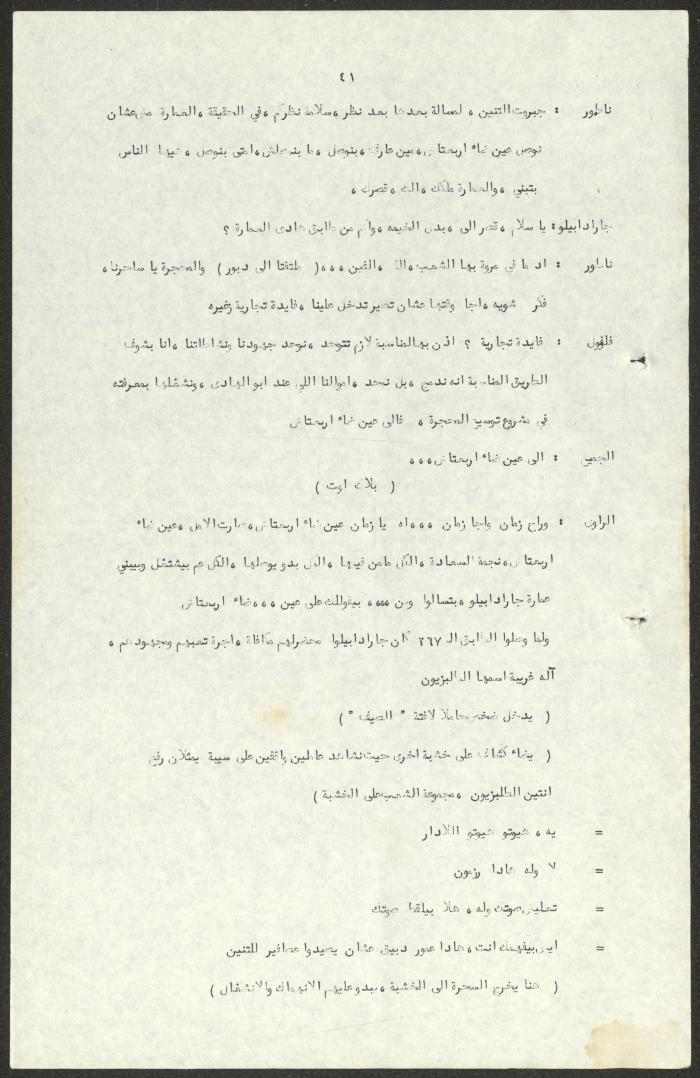 ٤١
ناطور : جبروت التنين ، لمسالة بعدها بعد نظر ، سلامة نظركم ، في الحقيقة ، العمارة مش عشان
نوصل عين ضاء اربعتاش ، مين عارف ، بنوصل ، ما بنوصلش ، امتى بنوصل ، فيها الناس
بتبني ، والعمارة ملكك ، الك ، قصرك ،
جارادابيلو : يا سلام ، قصر الي ، بدل الخيمه ، واكم من طابق هادى العمارة ؟
ناطور : اد ما في مروة بها الشعب ، الف ، الفين ،،، ( ملتفتا الى دبور ) والمحجرة يا ساحرنا ،
فكر شويه ، اجا وقتها عشان تصير تدخل علينا ، فايدة تجارية زغيره
فلفول : فايدة تجارية ؟ اذن بهالمناسبة لازم نتوحد ، نوحد جهودنا ونشاطاتنا ، انا بشوف
الطريق المناسبة انه ندمج ، بل نحد ، اموالنا اللي عند ابو الهادى ، ونشغلها بمعرفته
في مشروع توسيع المحجرة ، فالى عين ضاء اربعتاش
الجميع : الى عين ضاء اربعتاش ،،،
( بلاك اوت )
الراوى : وراح زمان واجا زمان ،،،، اه يا زمان عين ضاء اربعتاش ، صارت الامل ، عين ضاء
اربعتاش ، نجمة السعادة ، الكل مامن فيها ، الكل بدو يوصلها ، الكل عم بيشتغل وبيبني
عمارة جارادابيلو ، بتسالوا وين ،،،، بيقوللك على عين ،،، ضاء اربعتاش
ولما وصلوا الطابق الـ ٢٦٧ كان جارادابيلوا محضرلهم مكافاة ، اجرة تعبهم ومجهودهم ،
آله غريبة اسمها الطلبزيون
( يدخل شخص حاملا لافتة " الصيف " )
( يضاء كشاف على خشبة اخرى حيث نشاهد عاملين واقفين على سيبة يمثلان رفع
انتين الطلبزيون ، مجموعة الشعب على الخشبة )
= يه ، هيوتو هيوتو اللادار
= لا وله هادا رزعون
= تعليش صوتك وله ، هلا بيلقط صوتك
= ايش بيفهمك انت ، هادا عمور دبيق عشان يصيدوا عصافير للتنين
( هنا يخرج السحرة الى الخشبة ، يبدو عليهم الانهماك والانشغال )